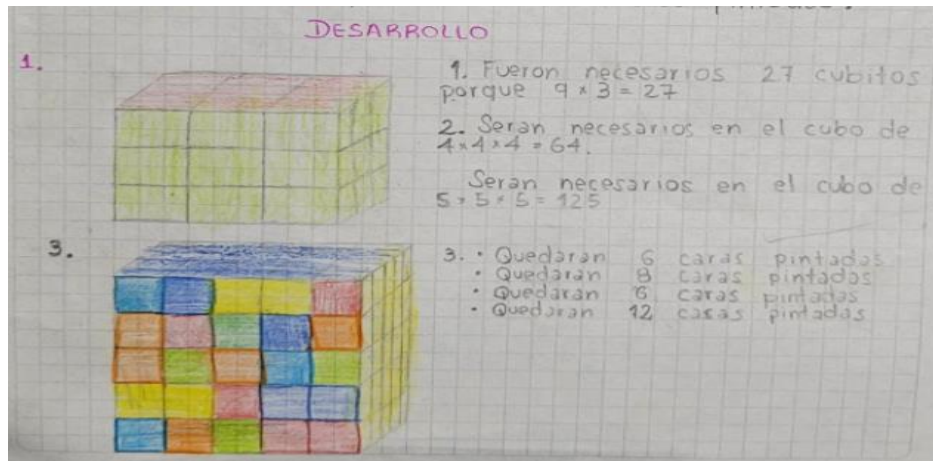 DESARROLLO
1.
1. Fueron necesarios 27 cubitos
porque 9 x 3 = 27
2. Seran necesarios en el cubo de
4 x 4 x 4 = 64.
Seran necesarios en el cubo de
5 x 5 x 5 = 125
3.
3. • Quedaran 6 caras pintadas
• Quedaran 8 caras pintadas
• Quedaran 6 caras pintadas
• Quedaran 12 caras pintadas